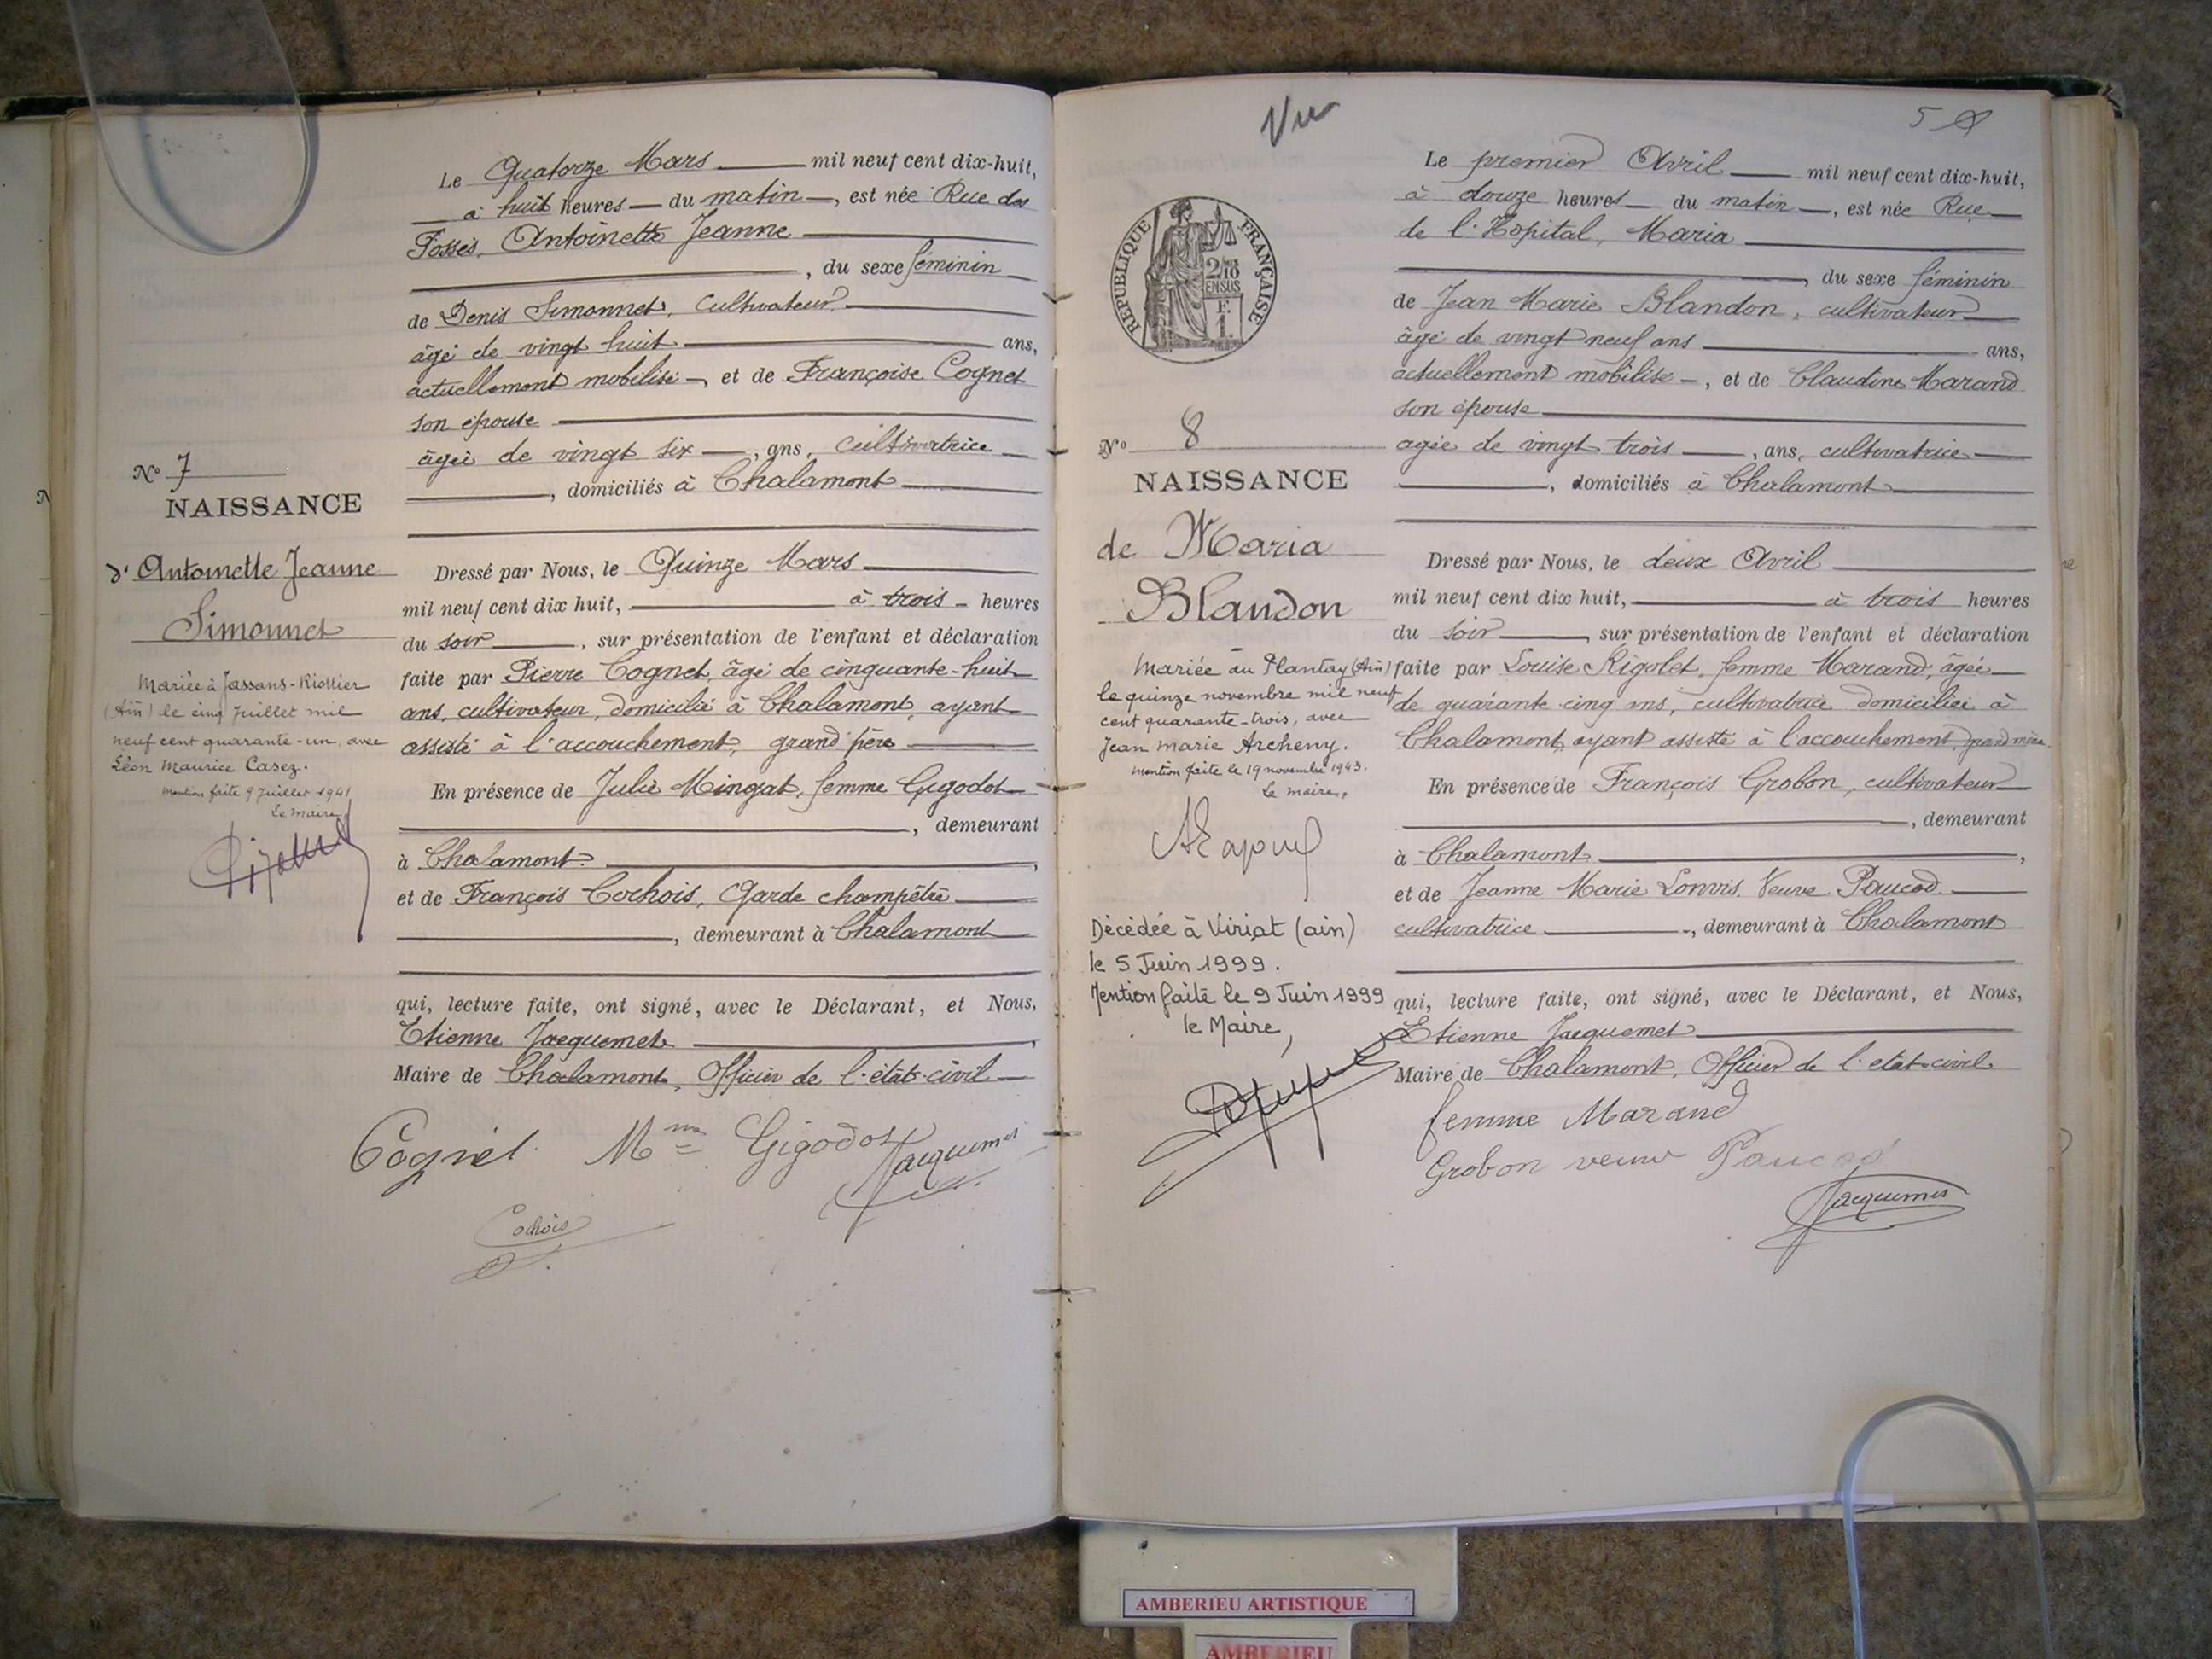 Le Quatorze Mars mil neuf cent dix-huit,
à huit heures du matin, est née Rue des
Fossés, Antoinette Jeanne
, du sexe féminin
de Denis Simonnet, Cultivateur
âgé de vingt huit ans,
actuellement mobilisé, et de Françoise Cognet
son épouse
âgée de vingt six, ans, cultivatrice
, domiciliés à Chalamont
No 7
NAISSANCE
d'Antoinette Jeanne
Simonnet
Mariée à Jassans-Riottier
(Ain) le cinq Juillet mil
neuf cent quarante-un, avec
Léon Maurice Casez.
Mention faite 9 Juillet 1941
Le Maire,
Dressé par Nous, le Quinze Mars
mil neuf cent dix huit, à trois heures
du soir, sur présentation de l'enfant et déclaration
faite par Pierre Cognet, âgé de cinquante-huit
ans, cultivateur, domicilié à Chalamont, ayant
assisté à l'accouchement, grand père
En présence de Julie Mingat, femme Gigodot
, demeurant
à Chalamont,
et de François Cochois, Garde champêtre
, demeurant à Chalamont
qui, lecture faite, ont signé, avec le Déclarant, et Nous,
Etienne Jacquemet,
Maire de Chalamont, Officier de l'état-civil
Cognet Mme Gigodot Jacquemet
Cochois
Vu
5
RÉPUBLIQUE FRANÇAISE
2/10
EN SUS
F.
1.
Le premier Avril mil neuf cent dix-huit,
à douze heures du matin, est née Rue
de l'Hopital, Maria
, du sexe féminin
de Jean Marie Blandon, cultivateur
âgé de vingt neuf ans ans,
actuellement mobilisé, et de Claudine Marand
son épouse
agée de vingt trois, ans, cultivatrice
, domiciliés à Chalamont
No 8
NAISSANCE
de Maria
Blandon
Mariée au Plantay (Ain)
le quinze novembre mil neuf
cent quarante-trois, avec
Jean Marie Archeny.
Mention faite le 19 novembre 1943.
Le maire,
Décédée à Viriat (ain)
le 5 Juin 1999.
Mention faite le 9 Juin 1999
le Maire,
Dressé par Nous, le deux Avril
mil neuf cent dix huit, à trois heures
du soir, sur présentation de l'enfant et déclaration
faite par Louise Rigolet, femme Marand, âgée
de quarante-cinq ans, cultivatrice domiciliée à
Chalamont, ayant assisté à l'accouchement, grand mère
En présence de François Grobon, cultivateur
, demeurant
à Chalamont,
et de Jeanne Marie Lonvis, Veuve Paucod
cultivatrice, demeurant à Chalamont
qui, lecture faite, ont signé, avec le Déclarant, et Nous,
Etienne Jacquemet
Maire de Chalamont, Officier de l'etat-civil
femme Marand
Grobon veuve Paucod
Jacquemet
AMBERIEU ARTISTIQUE
AMBERIEU